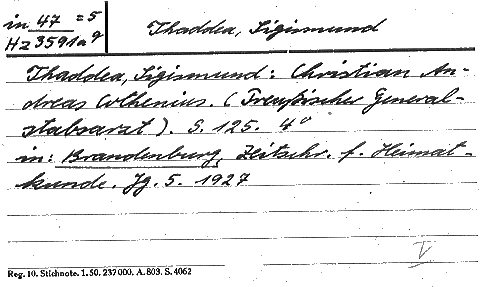 in 47 = 5
Hz 3591a q
Thaddea, Sigismund
Thaddea, Sigismund: Christian An-
dreas Cothenius. (Preußischer General-
stabsarzt). S. 125. 4°
in: Brandenburg, Zeitschr. f. Heimat-
kunde. Jg. 5. 1927
V
Reg. 10. Stichnote. 1. 50. 237000. A. 803. S. 4062